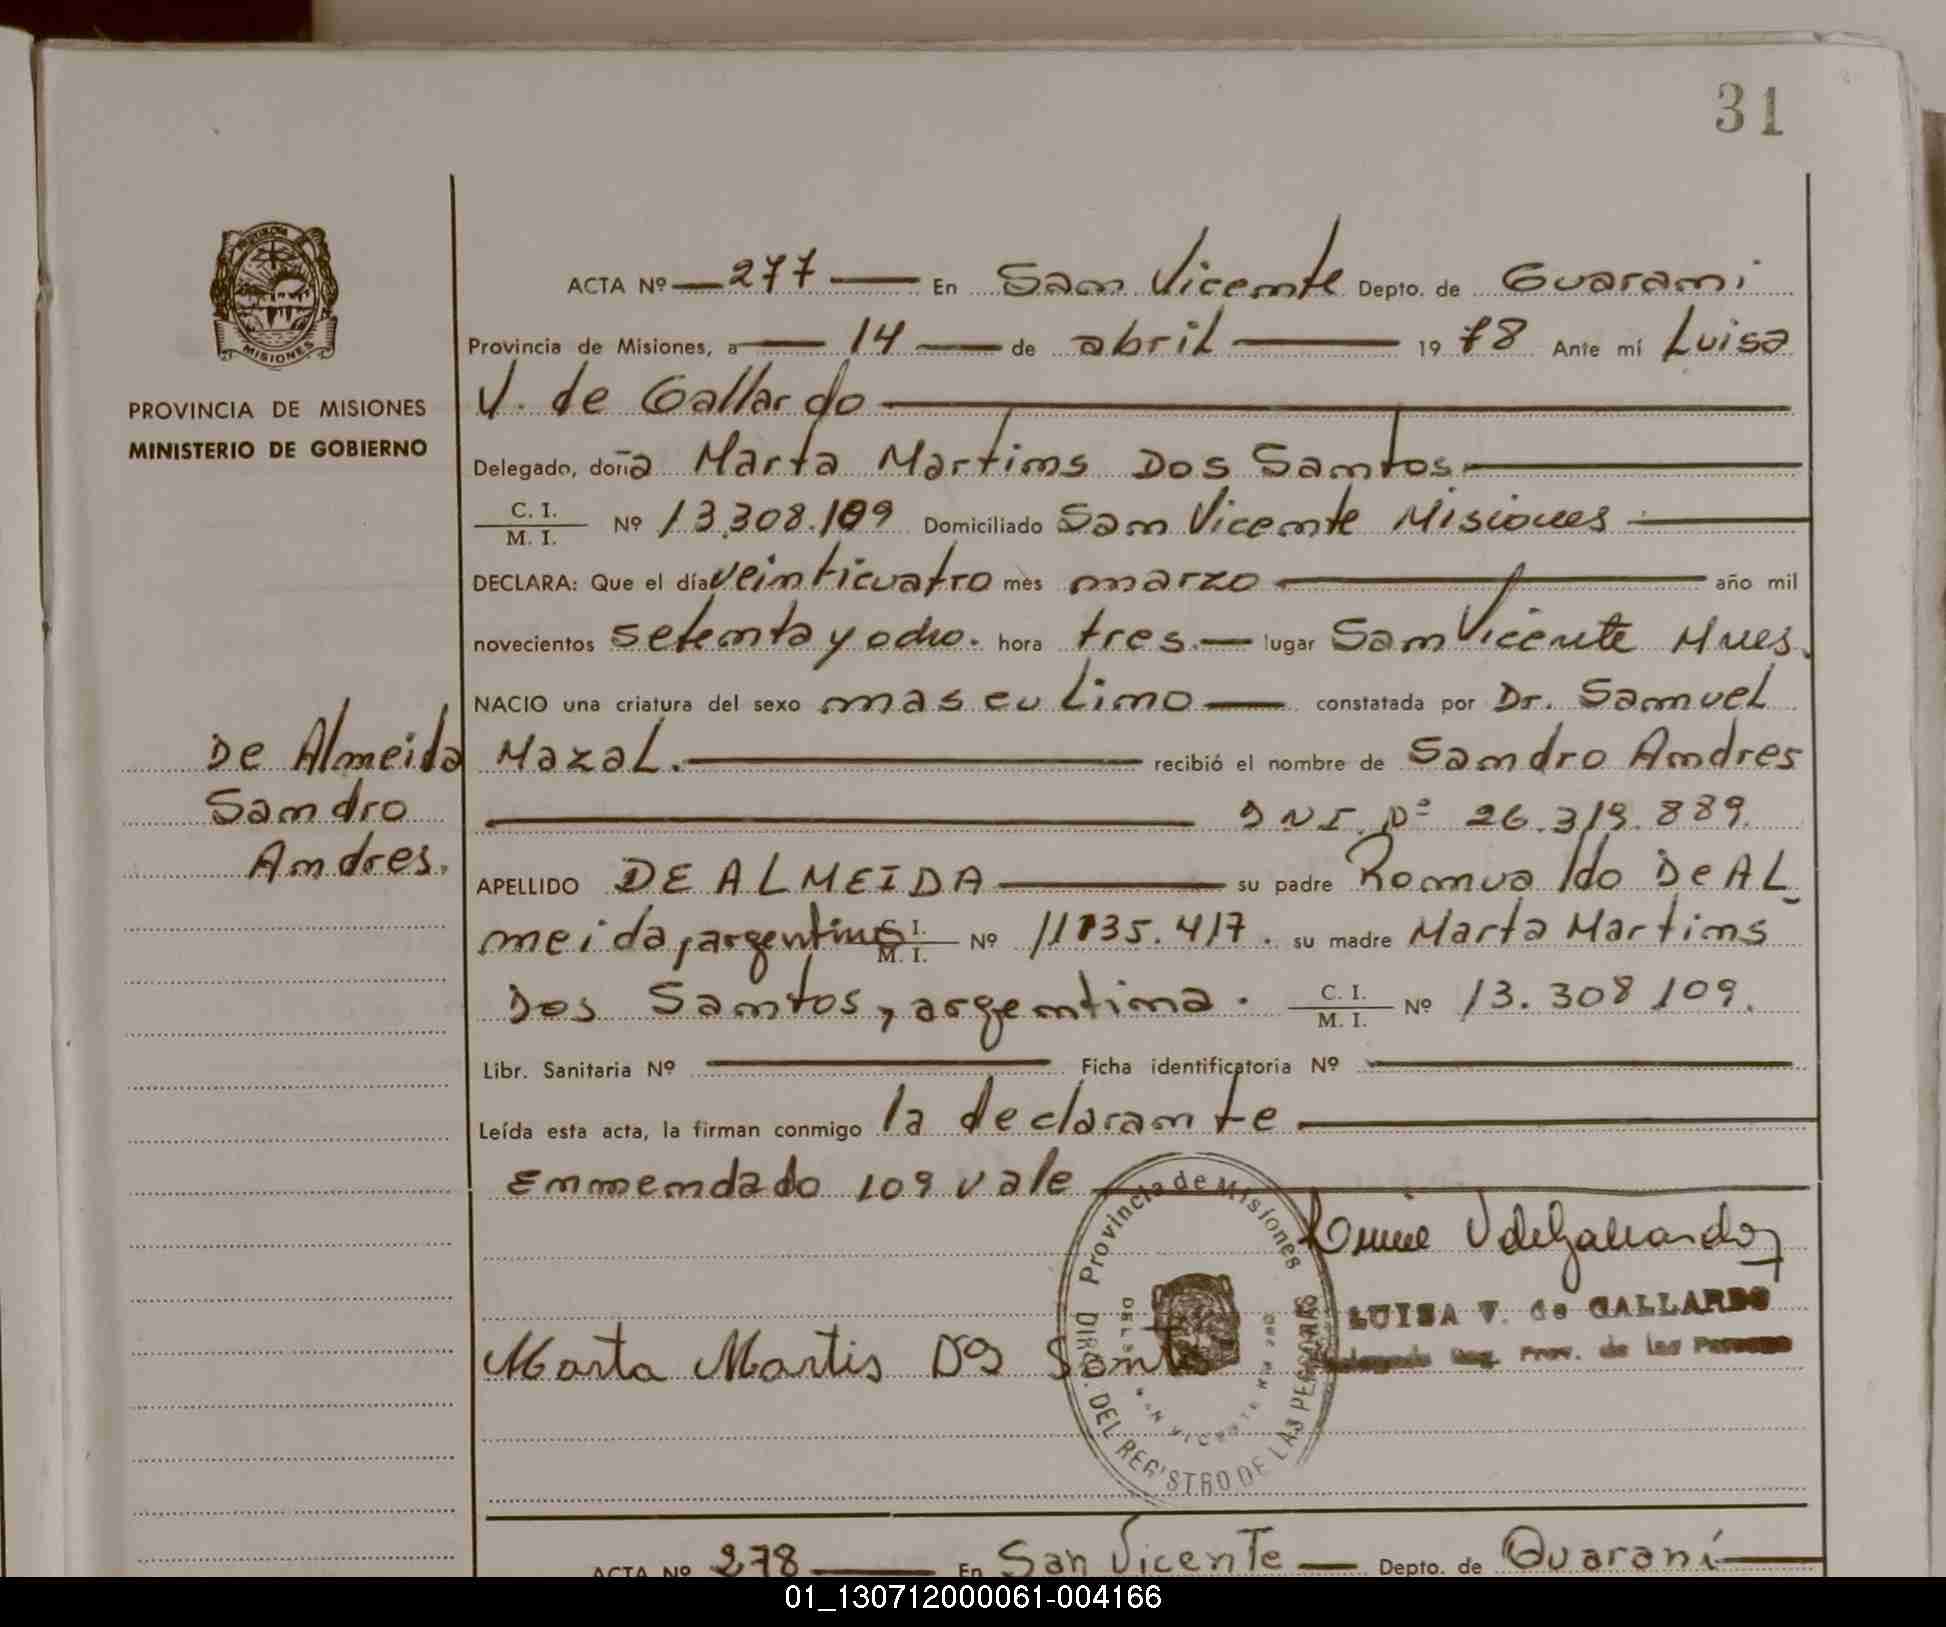 31
ACTA Nº 277 En San Vicente Depto. de Guarani
Provincia de Misiones, a 14 de abril 19 78 Ante mí Luisa
V. de Gallardo
PROVINCIA DE MISIONES
MINISTERIO DE GOBIERNO
MISIONES
Delegado, doña Marta Martins Dos Santos
C. I.
M. I. Nº 13.308.109 Domiciliado San Vicente Misiones
DECLARA: Que el día veinticuatro mes marzo año mil
novecientos setenta y ocho. hora tres. lugar San Vicente Mnes.
NACIO una criatura del sexo masculino constatada por Dr. Samuel
De Almeida
Sandro
Andres.
Mazal. recibió el nombre de Sandro Andres
DNI Nº 26.319.889.
APELLIDO DE ALMEIDA su padre Romualdo De AL
meida, argentino C. I.
M. I. Nº 11135.417. su madre Marta Martins
Dos Santos, argentina. C. I.
M. I. Nº 13.308 109.
Libr. Sanitaria Nº Ficha identificatoria Nº
Leída esta acta, la firman conmigo la declarante
Enmendado 109 vale
Provincia de Misiones
DIRC. DEL REGISTRO DE LAS PERSONAS
LUISA V. de GALLARDO
Delegada Reg. Prov. de las Personas
Marta Martis Dos Santos
ACTA Nº 278 En San Vicente Depto. de Guaraní
01_130712000061-004166